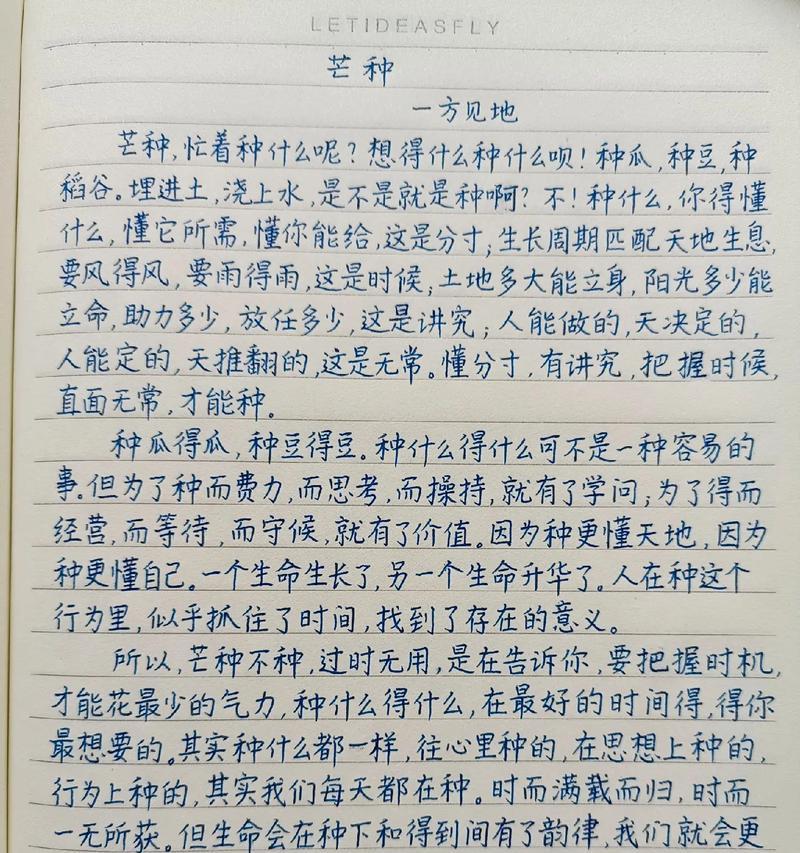 LETIDEASFLY
芒种
一方见地
芒种,忙着种什么呢?想得什么种什么呗!种瓜,种豆,种
稻谷。埋进土,浇上水,是不是就是种啊?不!种什么,你得懂
什么,懂它所需,懂你能给,这是分寸;生长周期匹配天地生息,
要风得风,要雨得雨,这是时候;土地多大能立身,阳光多少能
立命,助力多少,放任多少,这是讲究;人能做的,天决定的,
人能定的,天推翻的,这是无常。懂分寸,有讲究,把握时候,
直面无常,才能种。
种瓜得瓜,种豆得豆。种什么得什么可不是一种容易的
事。但为了种而费力,而思考,而操持,就有了学问;为了得而
经营,而等待,而守候,就有了价值。因为种更懂天地,因为
种更懂自己。一个生命生长了,另一个生命升华了。人在种这个
行为里,似乎抓住了时间,找到了存在的意义。
所以,芒种不种,过时无用,是在告诉你,要把握时机,
才能花最少的气力,种什么得什么,在最好的时间得,得你
最想要的。其实种什么都一样,往心里种的,在思想上种的,
行为上种的,其实我们每天都在种。时而满载而归,时而
一无所获。但生命会在种下和得到间有了韵律,我们就会更